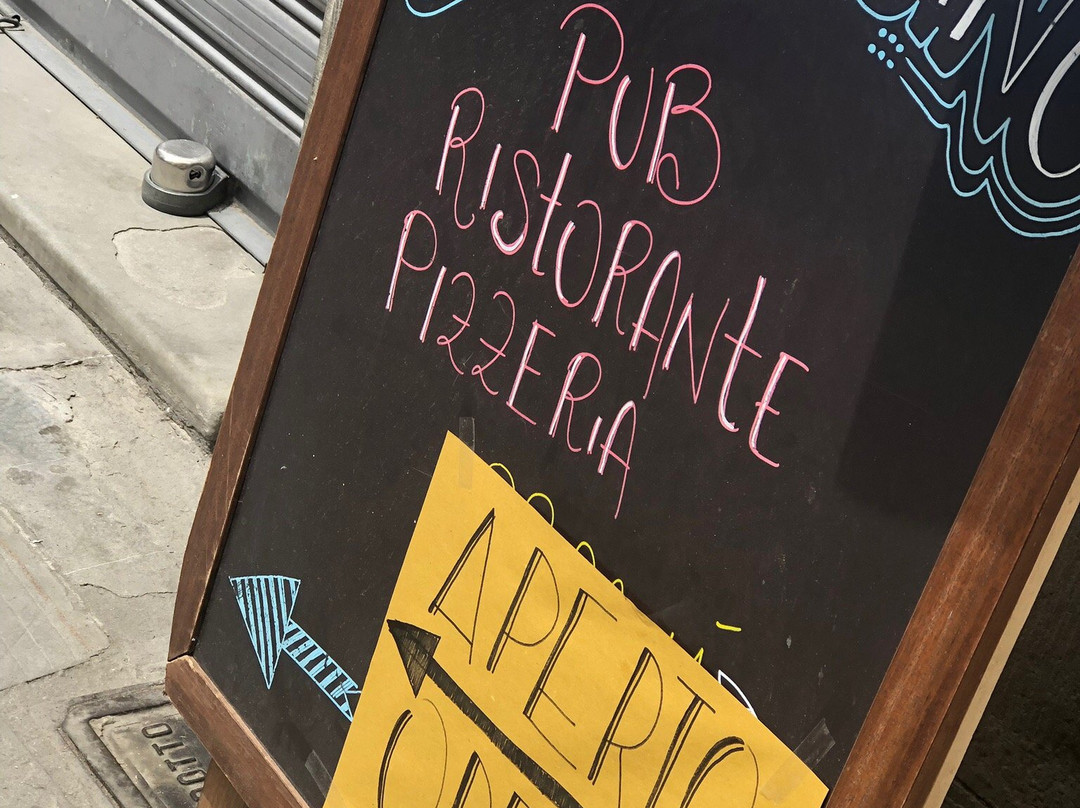 PUB
RIStORANtE
PIZZERiA
APERTO